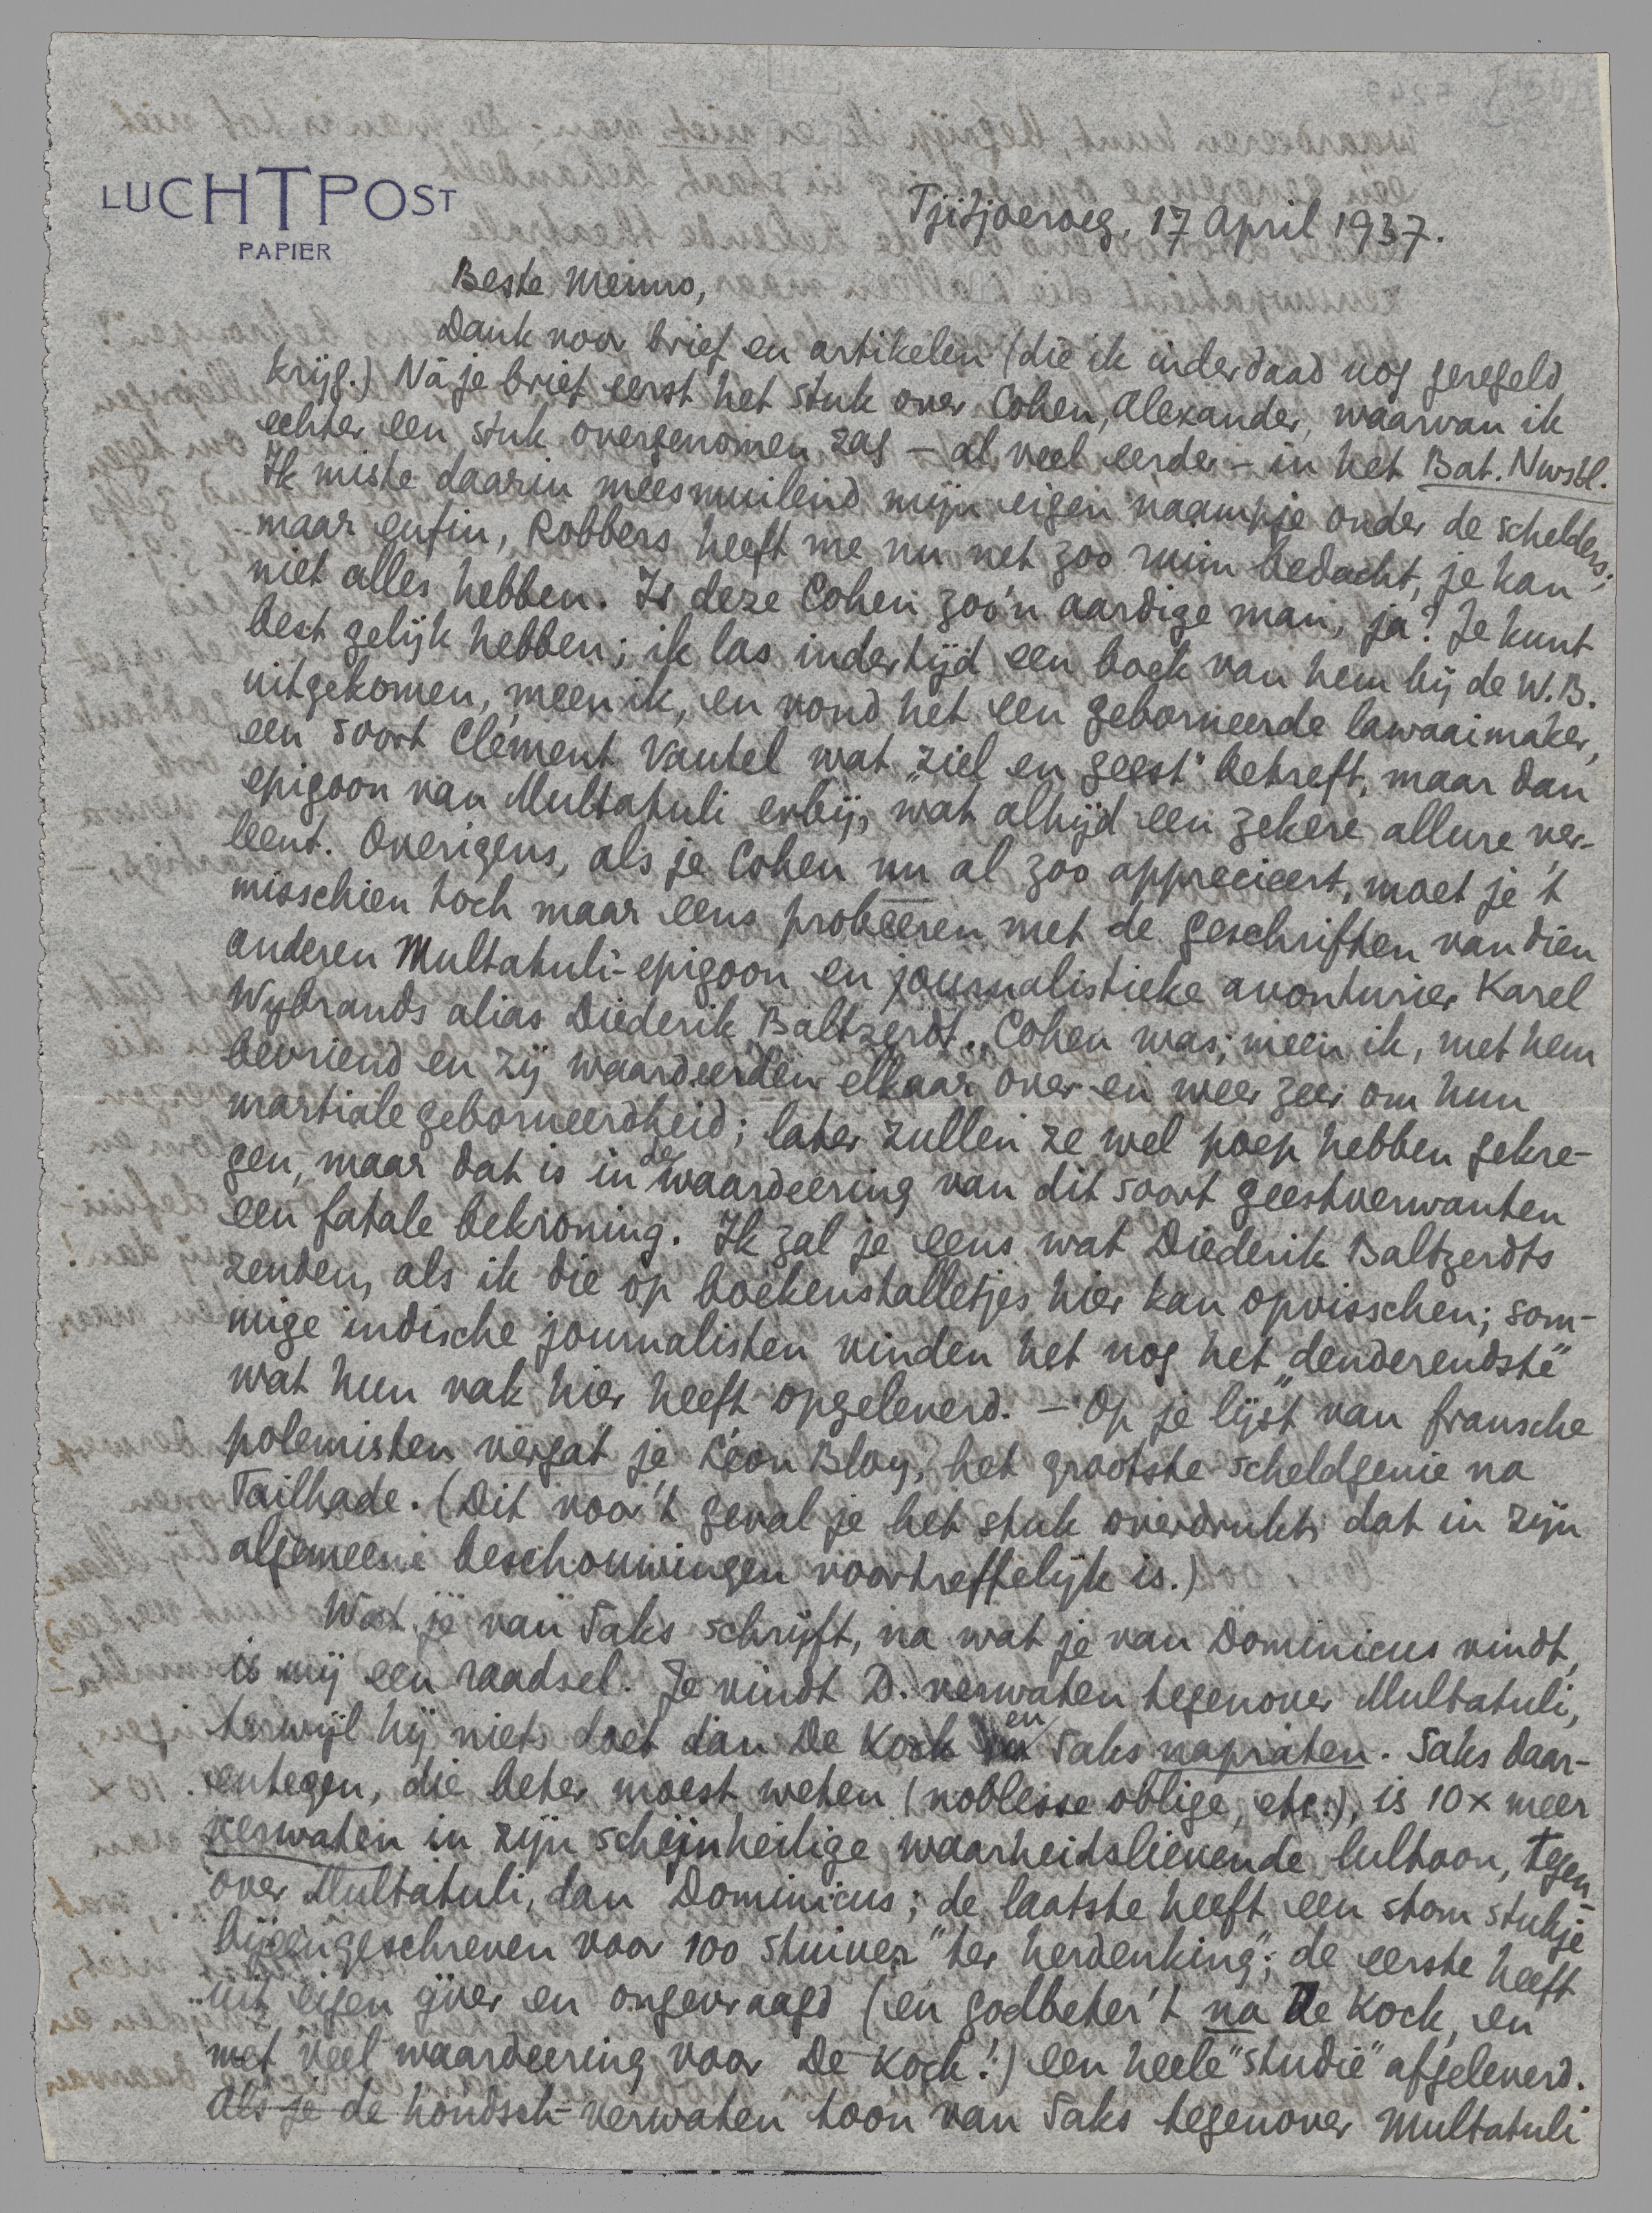 LUCHTPOST
PAPIER
Tjitjoeroeg, 17 April 1937.
Beste Menno,
Dank voor brief en artikelen (die ik inderdaad nog geregeld
krijg.) Nà je brief eerst het stuk over Cohen, Alexander, waarvan ik
echter een stuk overgenomen zag – al veel eerder – in het Bat. Nwsbl.
Ik miste daarin meesmuilend mijn eigen naampje onder de schelders;
maar enfin, Robbers heeft me nu net zoo ruim bedacht, je kan
niet alles hebben. Is deze Cohen zoo'n aardige man, ja? Je kunt
best gelijk hebben; ik las indertijd een boek van hem bij de W.B.
uitgekomen, meen ik, en vond het een geborneerde lawaaimaker,
een soort Clément Vautel wat „ziel en geest" betreft, maar dan
epigoon van Multatuli erbij, wat altijd een zekere allure ver-
leent. Overigens, als je Cohen nu al zoo apprecieert, moet je 't
misschien toch maar eens probeeren met de geschriften van dien
anderen Multatuli-epigoon en journalistieke avonturier Karel
Wybrands alias Diederik Baltzerdt. Cohen was, meen ik, met hem
bevriend en zij waardeerden elkaar over en weer zeer om hun
martiale geborneerdheid; later zullen ze wel poep hebben gekre-
gen, maar dat is in de waardeering van dit soort geestverwanten
een fatale bekroning. Ik zal je eens wat Diederik Baltzerdts
zenden, als ik die op boekenstalletjes hier kan opvisschen; som-
mige indische journalisten vinden het nog het „denderendste"
wat hun vak hier heeft opgeleverd. – Op je lijst van fransche
polemisten vergat je Léon Bloy, het grootste scheldgenie na
Tailhade. (Dit voor 't geval je het stuk overdrukt, dat in zijn
algemeene beschouwingen voortreffelijk is.)
Wat je van Saks schrijft, na wat je van Dominicus vindt,
is mij een raadsel. Je vindt D. verwaten tegenover Multatuli,
terwijl hij niets doet dan De Kock en Saks napraten. Saks daar-
entegen, die beter moest weten (noblesse oblige, etc.), is 10 x meer
verwaten in zijn schijnheilige waarheidslievende lultoon, tegen-
over Multatuli, dan Dominicus; de laatste heeft een stom stukje
bijeengeschreven voor 100 stuiver "ter herdenking"; de eerste heeft
uit eigen ijver en ongevraagd (en godbeter 't na De Kock, en
met veel waardeering voor De Kock!) een heele "studie" afgeleverd.
Als je de hondsch-verwaten toon van Saks tegenover Multatuli